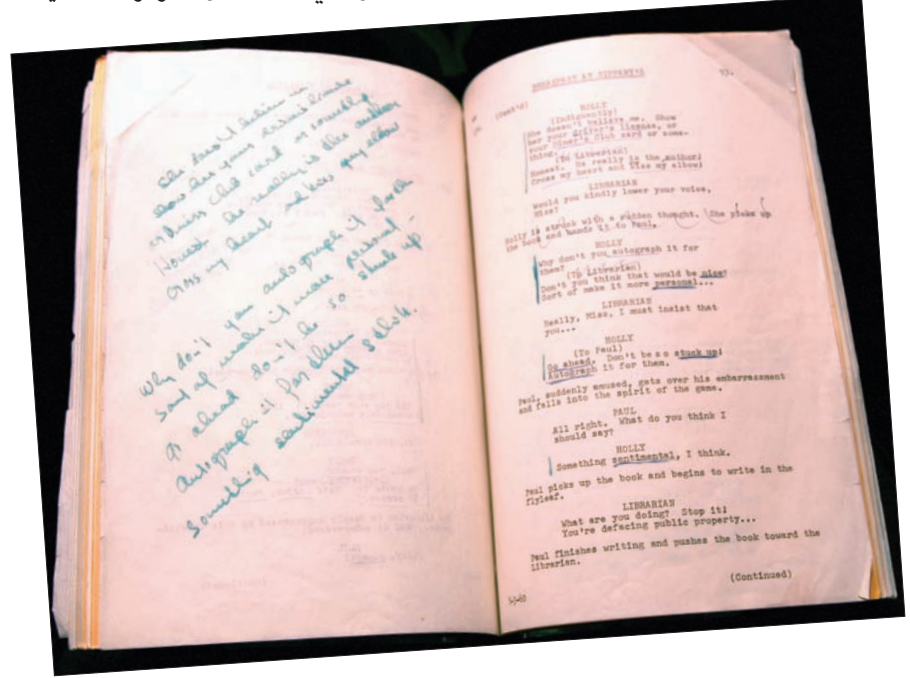 She doesn't believe me
show her your driver's license
or Diners Club card or something
Honest he really is the author
cross my heart and kiss my elbow
Why don't you autograph it for them
sort of make it more personal -
go ahead don't be so stuck up
autograph it for them
something sentimental I think.
BREAKFAST AT TIFFANY'S
93.
(Cont'd)
HOLLY
(Indignantly)
She doesn't believe me. Show
her your driver's license, or
your Diner's Club card or some-
thing.
(To Librarian)
Honest. He really is the author;
Cross my heart and kiss my elbow;
LIBRARIAN
Would you kindly lower your voice,
Miss?
Holly is struck with a sudden thought. She picks up
the book and hands it to Paul.
HOLLY
Why don't you autograph it for
them?
(To Librarian)
Don't you think that would be nice?
Sort of make it more personal...
LIBRARIAN
Really, Miss, I must insist that
you...
HOLLY
(To Paul)
Go ahead. Don't be so stuck up!
Autograph it for them.
Paul, suddenly amused, gets over his embarrassment
and falls into the spirit of the game.
PAUL
All right. What do you think I
should say?
HOLLY
Something sentimental, I think.
Paul picks up the book and begins to write in the
flyleaf.
LIBRARIAN
What are you doing? Stop it!
You're defacing public property...
Paul finishes writing and pushes the book toward the
Librarian.
(Continued)